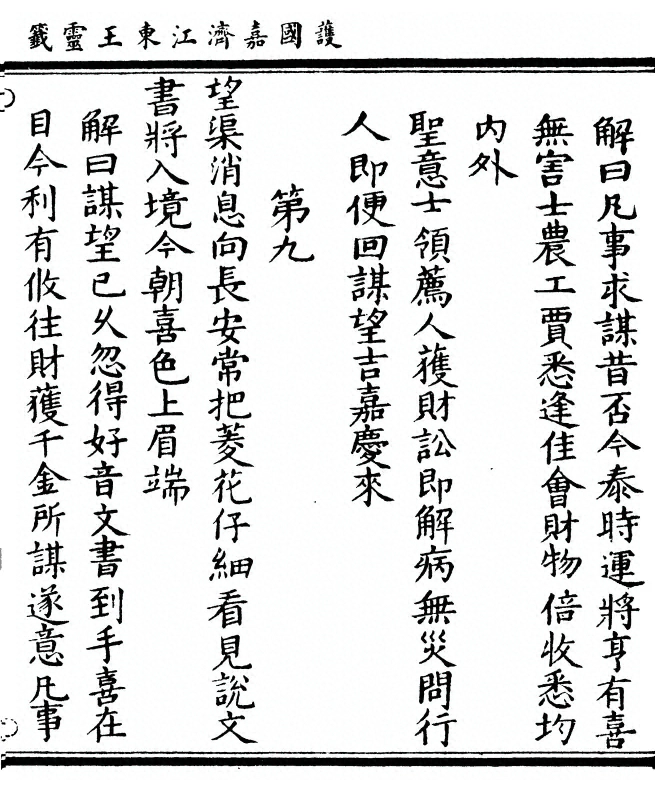 護國嘉濟江東王靈籤
解曰凡事求謀昔否今泰時運將亨有喜
無害士農工賈悉逢佳會財物倍收悉均
内外
聖意士領薦人獲財訟即解病無災問行
人即便回謀望吉嘉慶來
第九
望渠消息向長安常把菱花仔細看見說文
書將入境今朝喜色上眉端
解曰謀望已久忽得好音文書到手喜在
目今利有攸往財獲千金所謀遂意凡事